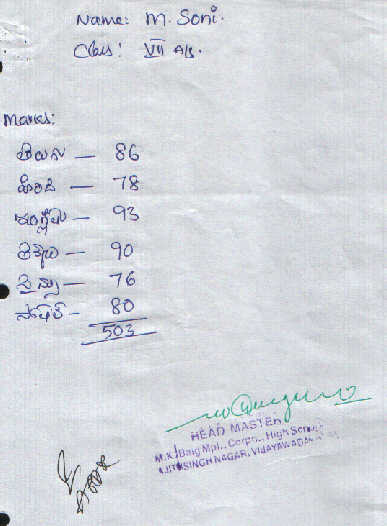 Name: M. Soni.
Class: VII A/s.
Marks:
తెలుగు — 86
హిందీ — 78
ఇంగ్లీషు — 93
లెక్కలు — 90
సైన్సు — 76
సోషల్ — 80
503
HEAD MASTER
M.K. Baig Mpl., Corpo., High School
AJITHSINGH NAGAR, VIJAYAWADA